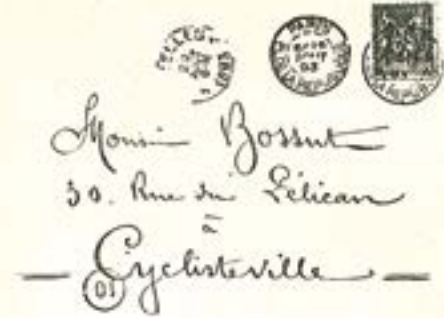 PARIS
93
Monsieur Bossut
30. Rue du Pélican
à
Cyclisteville
01